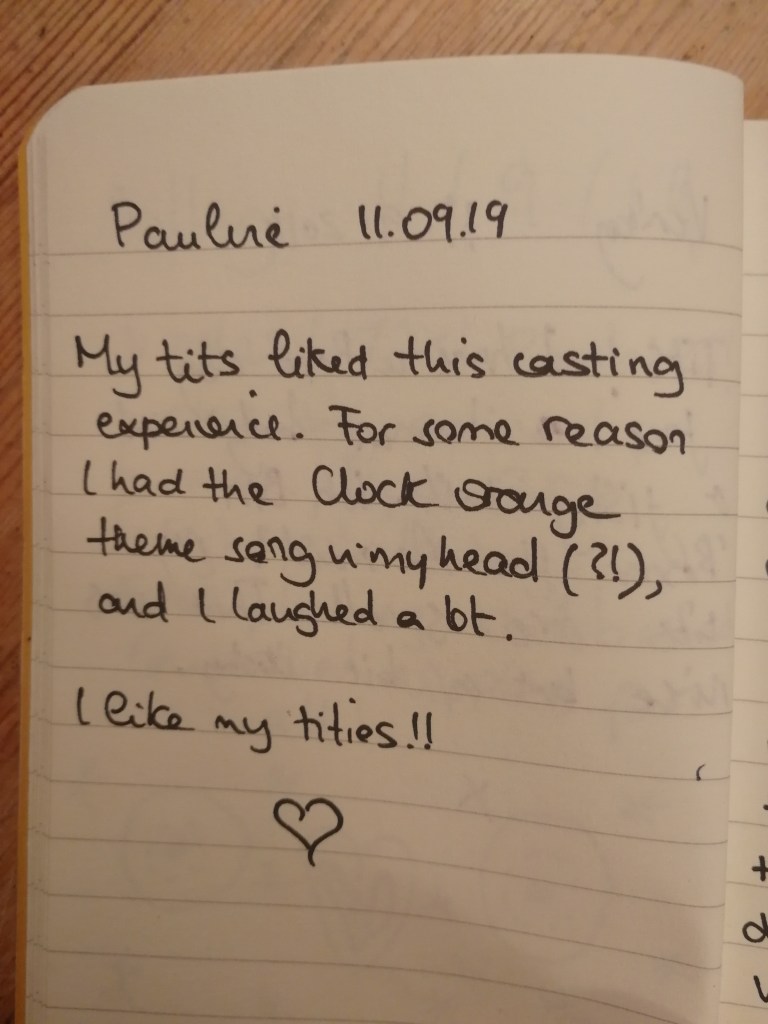 Pauline 11.09.19
My tits liked this casting
experience. For some reason
I had the Clock orange
theme song in my head (?!),
and I laughed a lot.
I like my tities!!